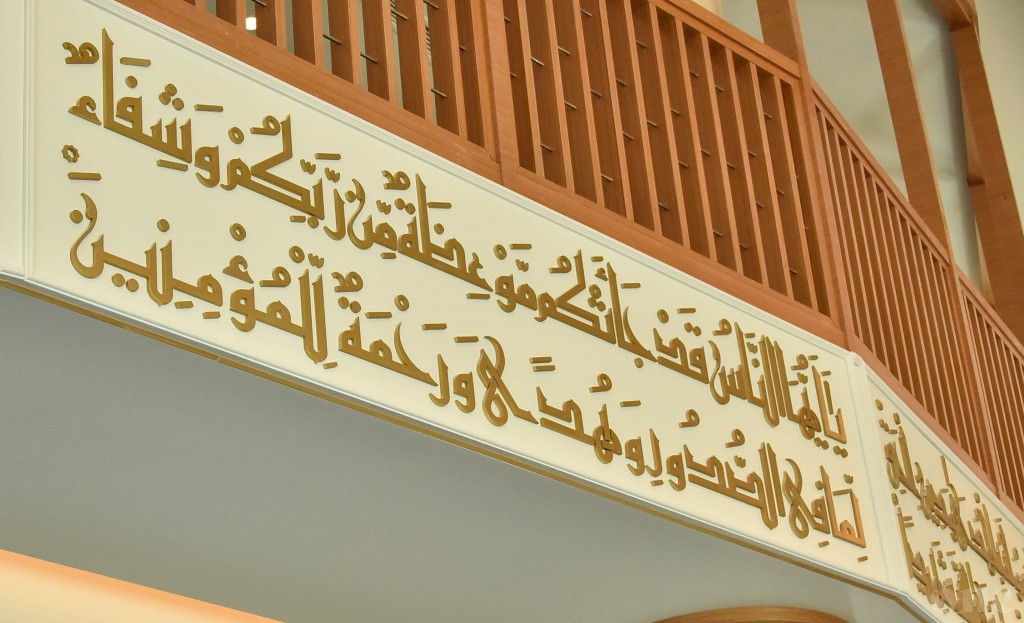 يَٰأَيُّهَا النَّاسُ قَدْ جَاءَتْكُم مَّوْعِظَةٌ مِّن رَّبِّكُمْ وَشِفَاءٌ
لِّمَا فِى الصُّدُورِ وَهُدًى وَرَحْمَةٌ لِّلْمُؤْمِنِينَ